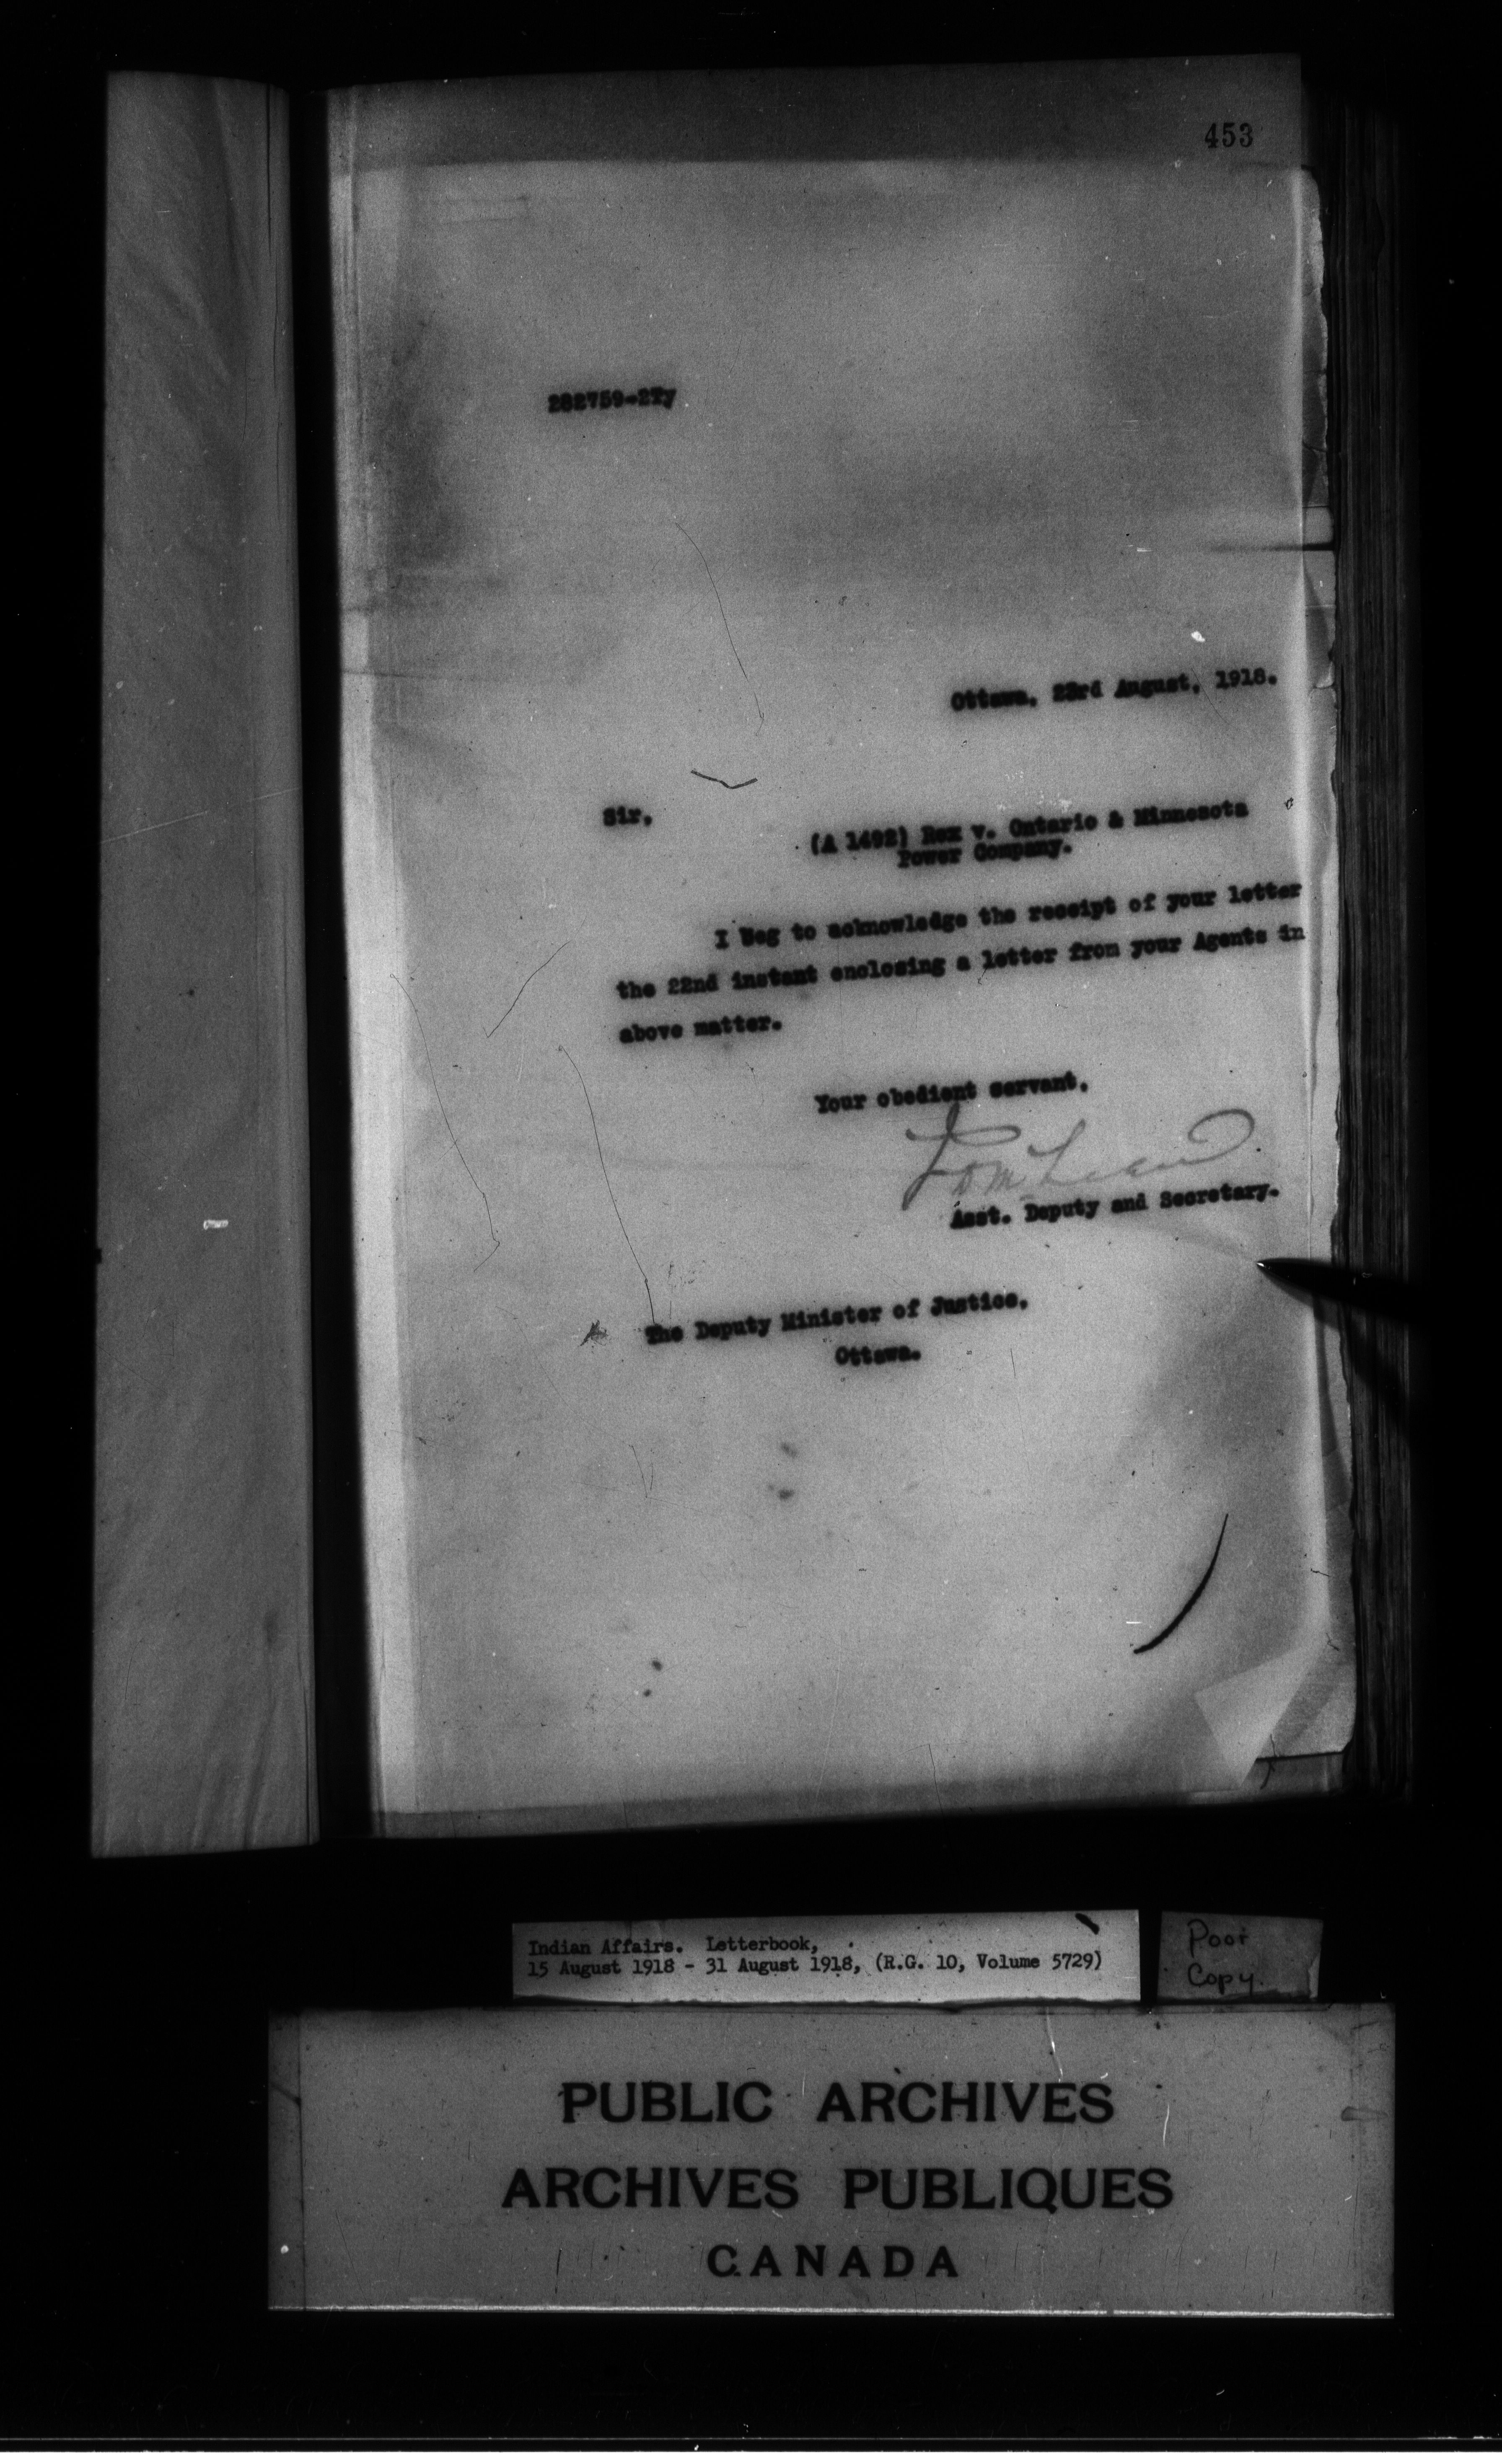 453
282759-2Ty
Ottawa, 23rd August, 1918.
Sir,
(A 1492) Rex v. Ontario & Minnesota
Power Company.
I beg to acknowledge the receipt of your letter
the 22nd instant enclosing a letter from your Agents in
above matter.
Your obedient servant,
Asst. Deputy and Secretary.
The Deputy Minister of Justice,
Ottawa.
Indian Affairs. Letterbook,
15 August 1918 - 31 August 1918, (R.G. 10, Volume 5729)
Poor
Copy.
PUBLIC ARCHIVES
ARCHIVES PUBLIQUES
CANADA